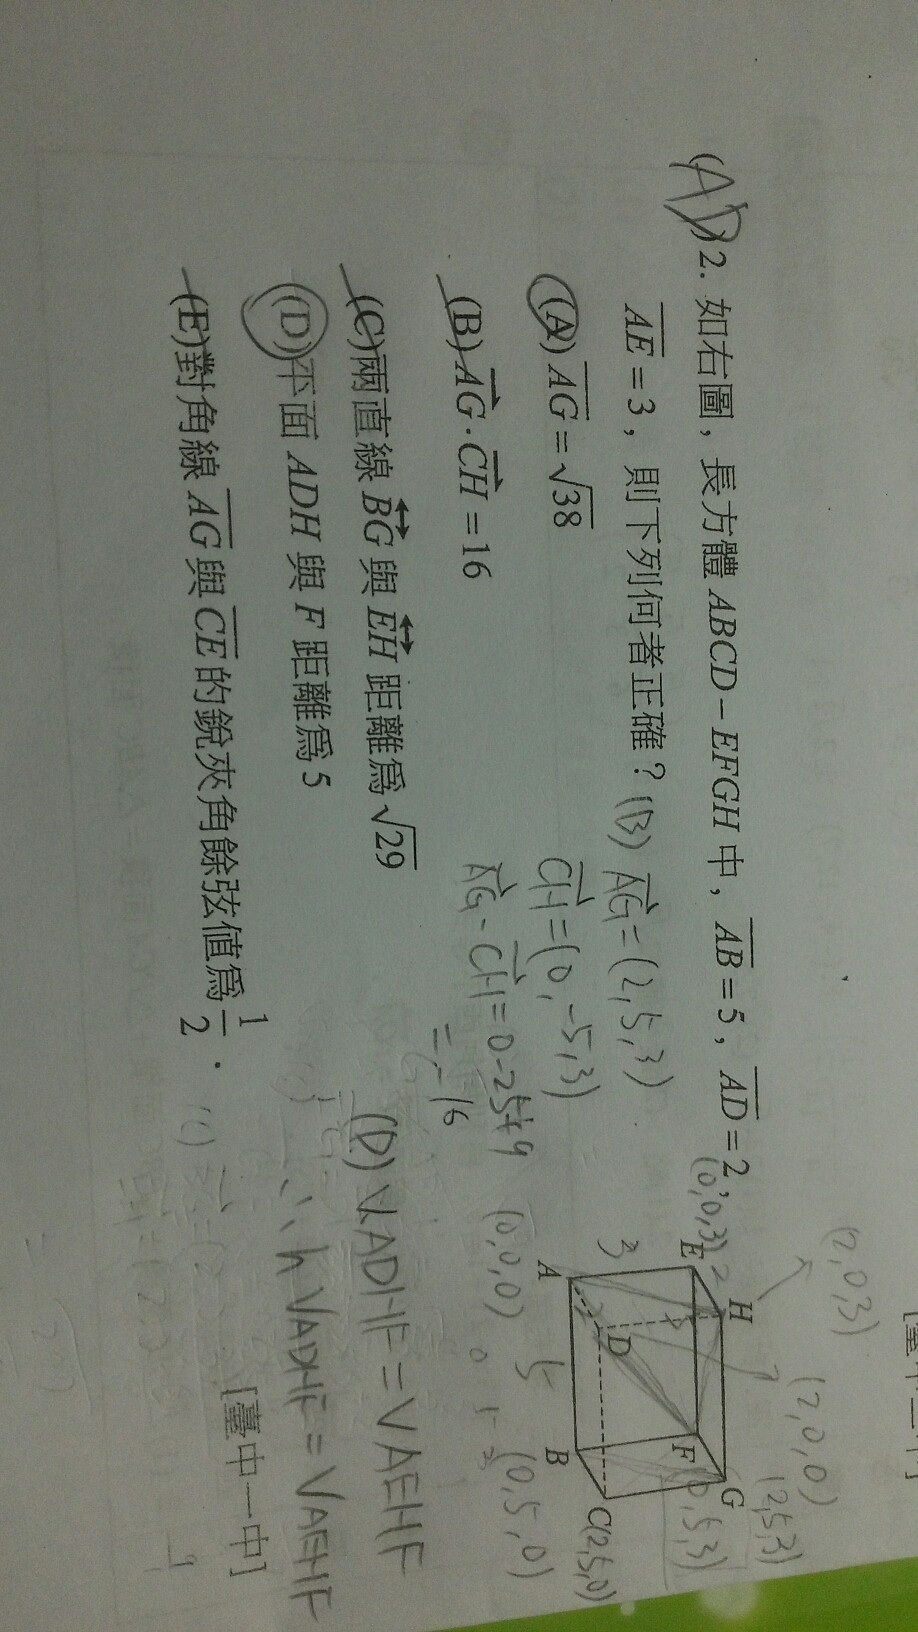 (AD) 2. 如右圖，長方體 ABCD－EFGH 中，AB＝5，AD＝2，
AE＝3，則下列何者正確？
(A) AG＝√38
(B) AG．CH＝16
(C) 兩直線 BG 與 EH 距離為 √29
(D) 平面 ADH 與 F 距離為 5
(E) 對角線 AG 與 CE 的銳夾角餘弦值為 1/2．
[臺中一中]
(B) AG=(2,5,3)
CH=(0,-5,3)
AG·CH=0-25+9
=-16
(D) VADHF=VAEHF
∴ h VADHF=VAEHF
(2,0,3)
(2,0,0)
(2,5,3)
(0,0,3)
E H
F G
3
A D
B C(2,5,0)
(0,5,3)
(0,0,0)
5
(0,5,0)